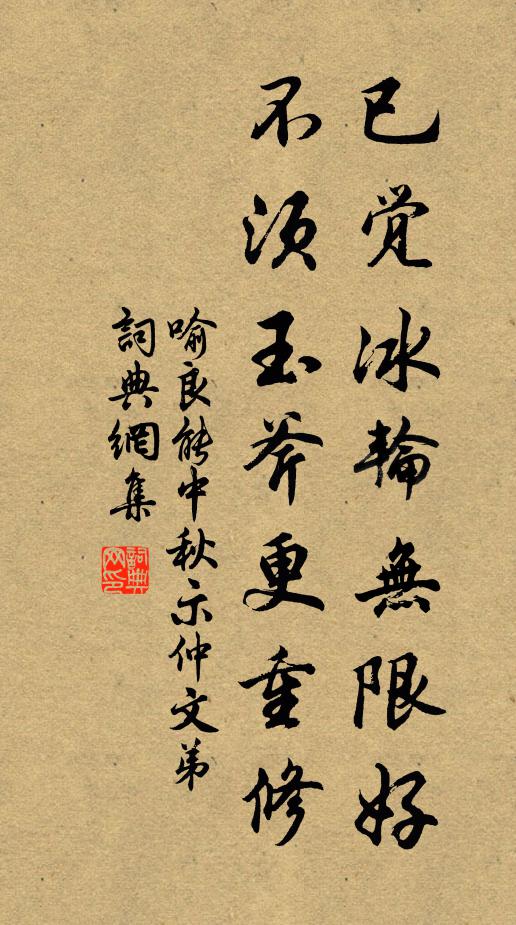 已觉冰輪無限好
不須玉斧更重修
喻良能中秋示仲文弟
詞典網集
詞典網印